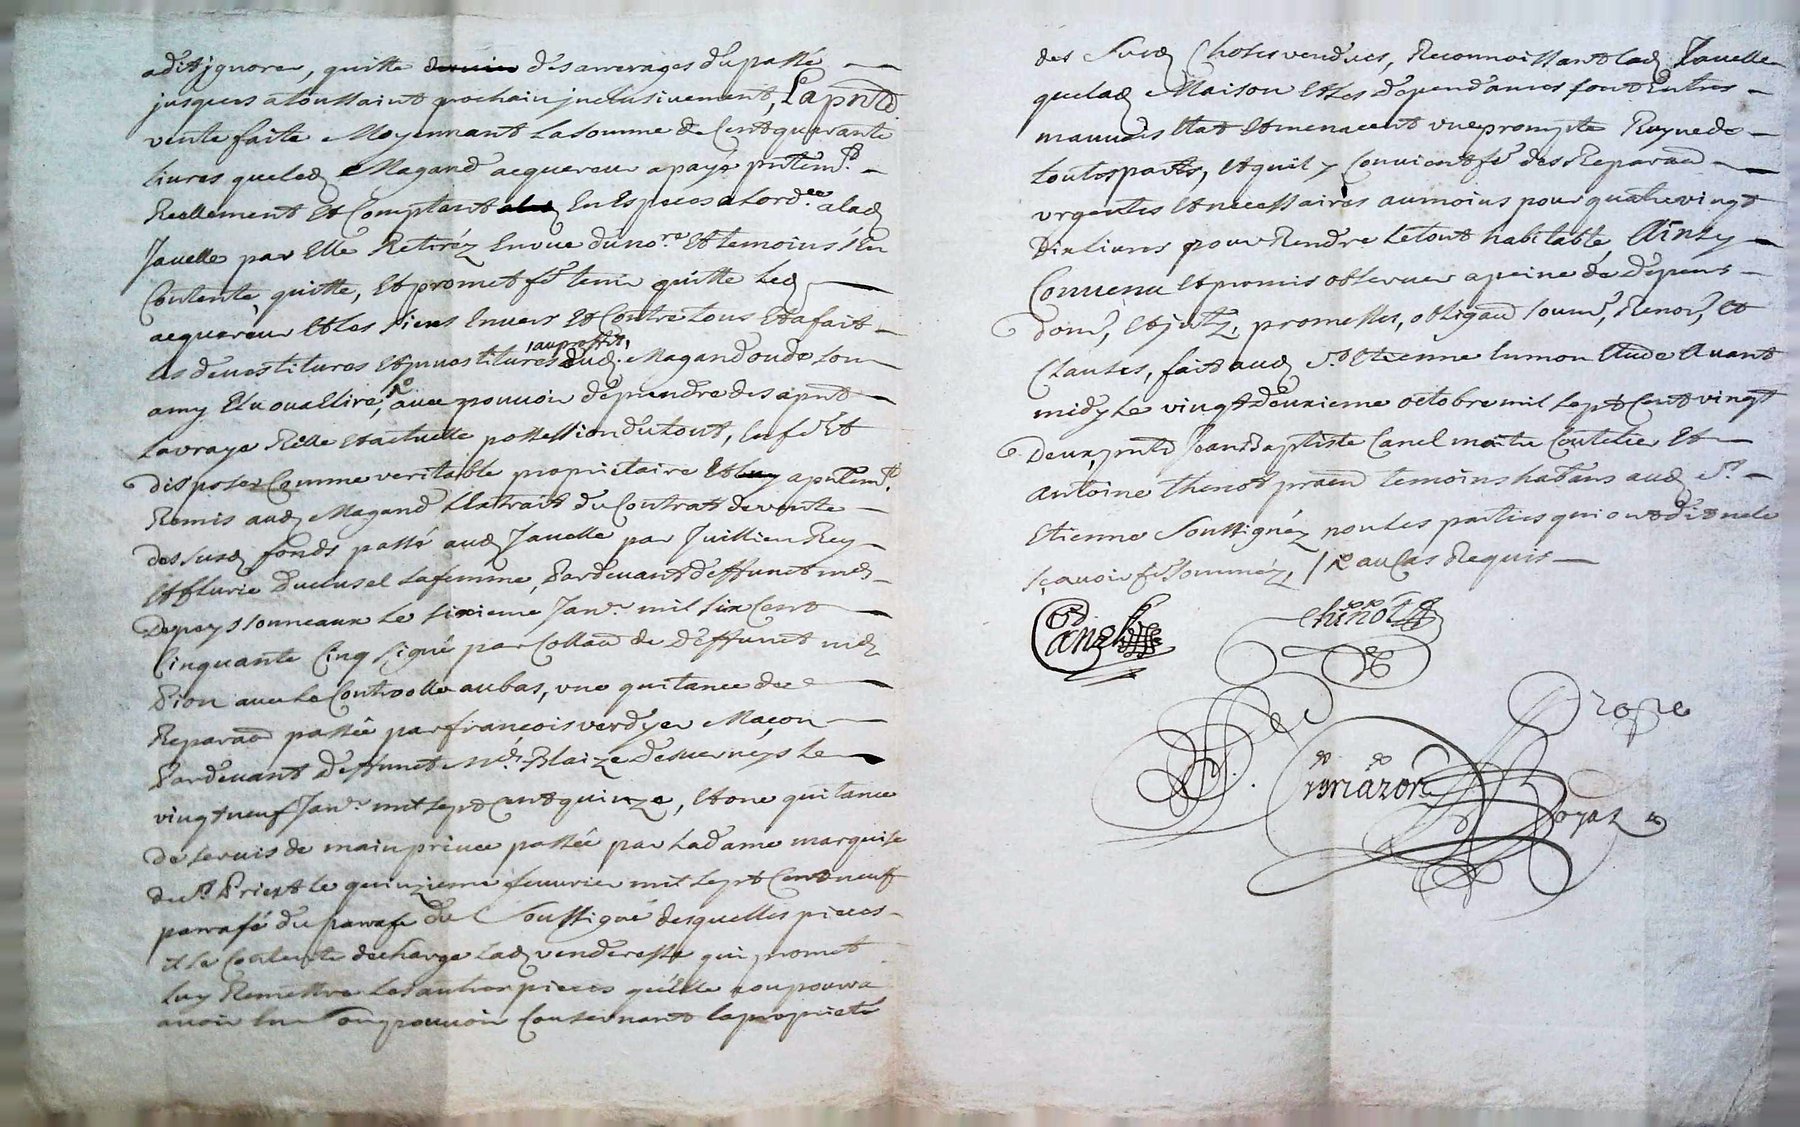 a dit ignorer, quitte des arrerages du passé
jusques a toussaint prochain jnclusivement, La pnte
vente faite Moyennant la somme de Cent quarante
livres que led Magand acquereur a payé pntemt
Reellement et Comptant En Especes a Lordce a lad
Javelle par Elle Retiréz En vue du nore et temoins sen
Contente, quitte, et promet fe tenir quitte Led
acquereur et les siens Envers et Contre tous et a fait
les devestitures et jnvestitures au proffit dud. Magand ou de son
amy Elu ou a Elire, avec pouvoir de prendre des apnt
La vraye Rélle et actuelle possession du tout, En fe Et
disposer Comme veritable proprietaire Et a pntemt
Remis aud Magand L'Extrait du Contrat de vente
des susd fonds passé aud Javelle par Jullien Rey
et Flurie Duclusel sa femme, Pardevant deffunct me
Depeyssonneaux Le sixieme Janr mil six Cent
Cinquante Cinq signé par Collaon de Deffunct me
Dion avec Le Controolle au bas, une quitance de
Reparaon passée par francois verdyer Maçon
Pardevant Deffunct Me Blaize Desverneys Le
vingt neuf Janr mil sept Cent quinze, et one quitance
de servis de main privee passée par La dame marquise
de St Priest le quinzieme fevvrier mil sept Cent neuff
parrafé du parrafe du Soussigné desquelles pieces
il se Contente decharge Lad venderesse qui promet
Luy Remettre Les autres pieces qu'elle pourra
avoir En Son pouvoir Consernant la proprieté
des Susd Choses vendues, Reconnoissant lad Javelle
que lad Maison Et Les dependances sont En tres
mauvais Etat Et menacent une prompte Ruyne de
toutes parts, Et quil y Convient fe des Reparaon
urgentes et necessaires au moins pour quatre vingt
Dix livres pour Rendre Le tout habitable, Ainsy
Convenu Et promis observer a peine de depens
dom, Et jntz, promesses, obligaon soum, Renon, et
Clauses, fait aud St Etienne En mon Etude Avant
midy Le vingt deuxieme octobre mil sept Cent vingt
Deux, pnts Jean Baptiste Canel maitre Coutelier Et
Antoine thenot praen temoins habitans aud St
Etienne Soussignéz non les parties qui ont dit ne le
sçavoir fe Sommées, au Cas Requis
Canel
thenot